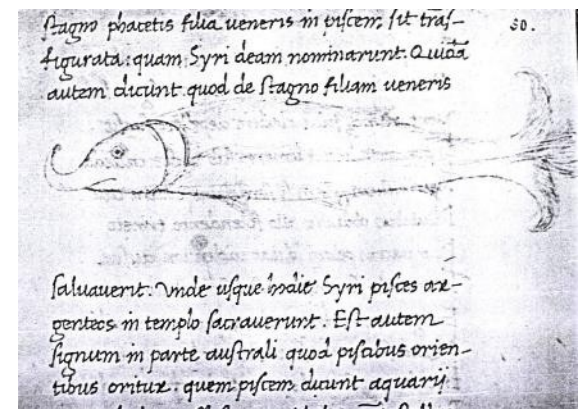 stagno phacetis filia ueneris in piscem sit tras-
figurata: quam Syri deam nominarunt. Quidā
autem dicunt quod de stagno filiam ueneris
50.
saluauerit. Vnde usque hodie Syri pisces ar-
genteos in templo sacrauerunt. Est autem
signum in parte australi quod piscibus orien-
tibus oritur: quem piscem dicunt aquarij